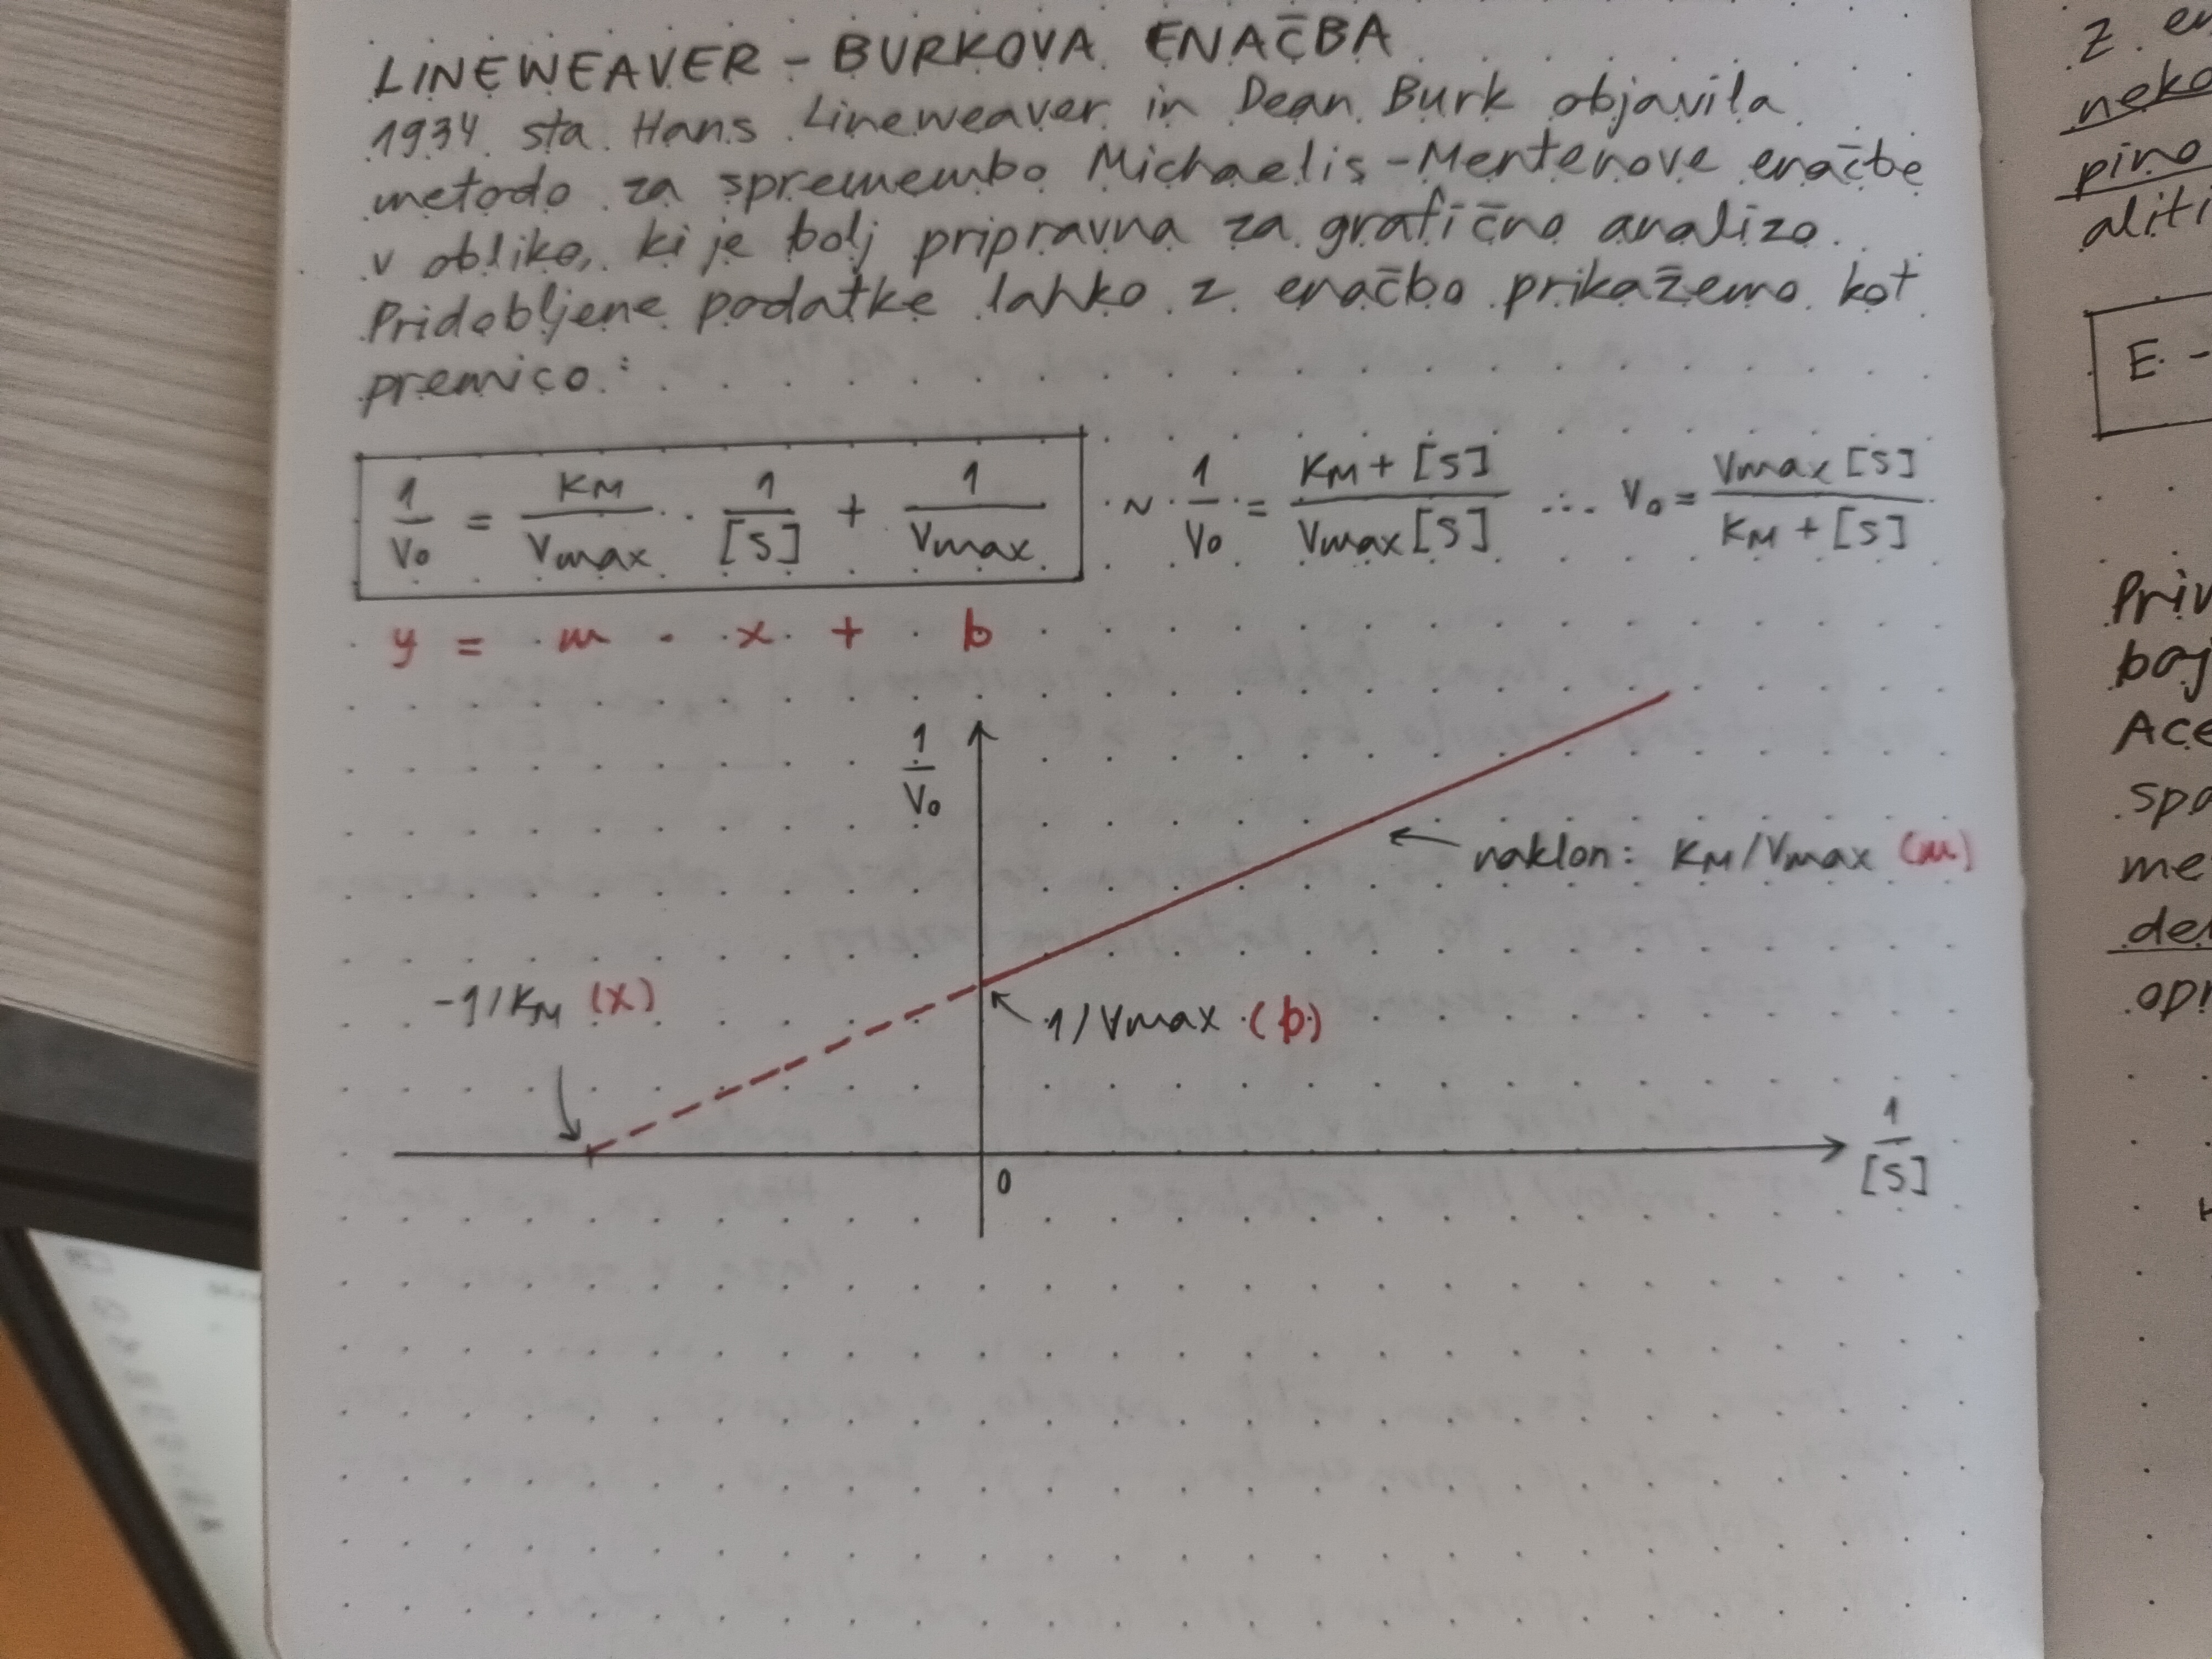 LINEWEAVER - BURKOVA ENAČBA
1934 sta Hans Lineweaver in Dean Burk objavila
metodo za spremembo Michaelis-Mentenove enačbe
v obliko, ki je bolj pripravna za grafično analizo.
Pridobljene podatke lahko z enačbo prikažemo kot
premico:
1/V₀ = KM/Vmax · 1/[S] + 1/Vmax ~ 1/V₀ = KM + [S]/Vmax [S] ∴ V₀ = Vmax [S]/KM + [S]
y = m · x + b
1/V₀
naklon: KM/Vmax (m)
-1/KM (x)
1/Vmax (b)
1/[S]
0
neko
pino
E -
Ace
me